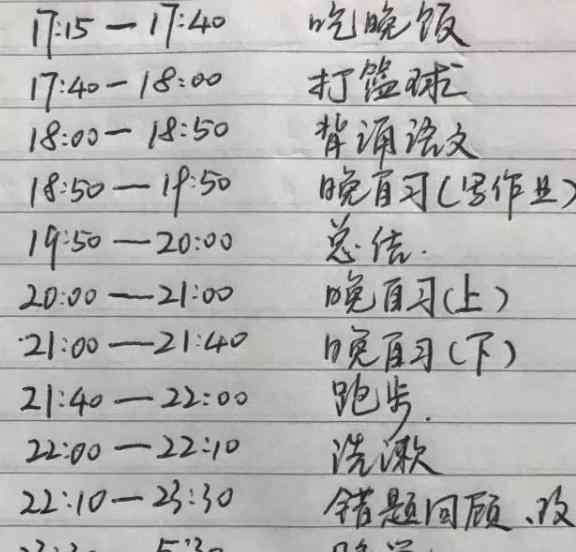 17:15 — 17:40 吃晚饭
17:40 — 18:00 打篮球
18:00 — 18:50 背诵语文
18:50 — 19:50 晚自习(写作业)
19:50 — 20:00 总结.
20:00 — 21:00 晚自习(上)
21:00 — 21:40 晚自习(下)
21:40 — 22:00 跑步.
22:00 — 22:10 洗漱
22:10 — 23:30 错题回顾、改